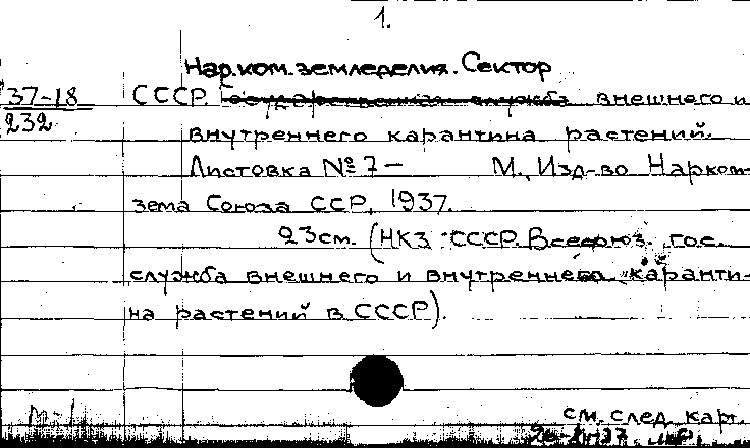 1.
Нар.ком. земледелия. Сектор
37-18 СССР. Государственная служба внешнего и
232 внутреннего карантина растений.
Листовка № 7 — М., Изд-во Нарком-
зема Союза ССР, 1937.
23 см. (НКЗ СССР. Всесоюз. гос.
служба внешнего и внутреннего каранти-
на растений в СССР).
см. след. карт.